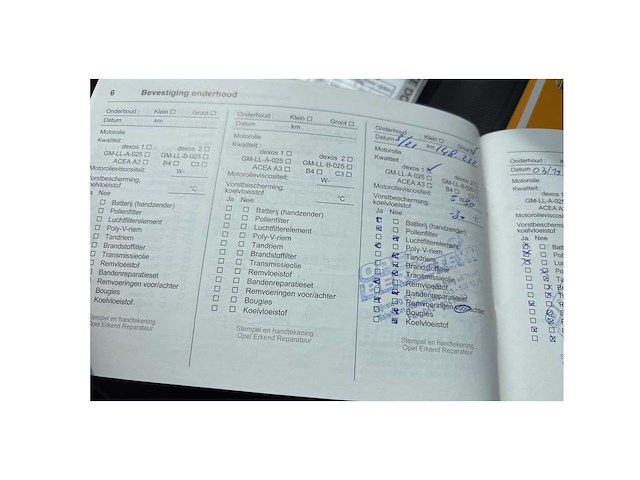 6 Bevestiging onderhoud
Onderhoud : Klein ☐ Groot ☐
Datum km
Motorolie
Kwaliteit : dexos 1 ☐ dexos 2 ☐
GM-LL-A-025 ☐ GM-LL-B-025 ☐
ACEA A3 ☐ B4 ☐ C3 ☐
Motorolieviscositeit: W-
Vorstbescherming,
koelvloeistof °C
Ja Nee
☐ Batterij (handzender)
☐ Pollenfilter
☐ Luchtfilterelement
☐ Poly-V-riem
☐ Tandriem
☐ Brandstoffilter
☐ Transmissieolie
☐ Remvloeistof
☐ Bandenreparatieset
☐ Remvoeringen voor/achter
Bougies
Koelvloeistof
Stempel en handtekening
Opel Erkend Reparateur
Onderhoud : Klein ☐ Groot ☐
Datum km
Motorolie
Kwaliteit : dexos 1 ☐ dexos 2 ☐
GM-LL-A-025 ☐ GM-LL-B-025 ☐
ACEA A3 ☐ B4 ☐ C3 ☐
Motorolieviscositeit: W-
Vorstbescherming,
koelvloeistof °C
Ja Nee
☐ ☐ Batterij (handzender)
☐ ☐ Pollenfilter
☐ ☐ Luchtfilterelement
☐ ☐ Poly-V-riem
☐ ☐ Tandriem
☐ ☐ Brandstoffilter
☐ ☐ Transmissieolie
☐ ☐ Remvloeistof
☐ ☐ Bandenreparatieset
☐ ☐ Remvoeringen voor/achter
☐ ☐ Bougies
☐ ☐ Koelvloeistof
Stempel en handtekening
Opel Erkend Reparateur
Onderhoud : Klein ☐
Datum km
Motorolie
Kwaliteit : dexos 1 dexos 2
GM-LL-A-025 ☐ GM-LL-B-025
ACEA A3 ☐ B4 ☐
Motorolieviscositeit:
Vorstbescherming,
koelvloeistof
Ja Nee
Batterij (handzender)
Pollenfilter
Luchtfilterelement
Poly-V-riem
Tandriem
Brandstoffilter
Transmissieolie
Remvloeistof
Bandenreparatieset
Remvoeringen
Bougies
Koelvloeistof
Stempel en handtekening
Opel Erkend Reparateur
Onderhoud :
Datum
Motorolie
Kwaliteit :
dexos 1
GM-LL-A-025
ACEA A3
Motorolieviscositeit
Vorstbescherming
koelvloeistof
Ja Nee